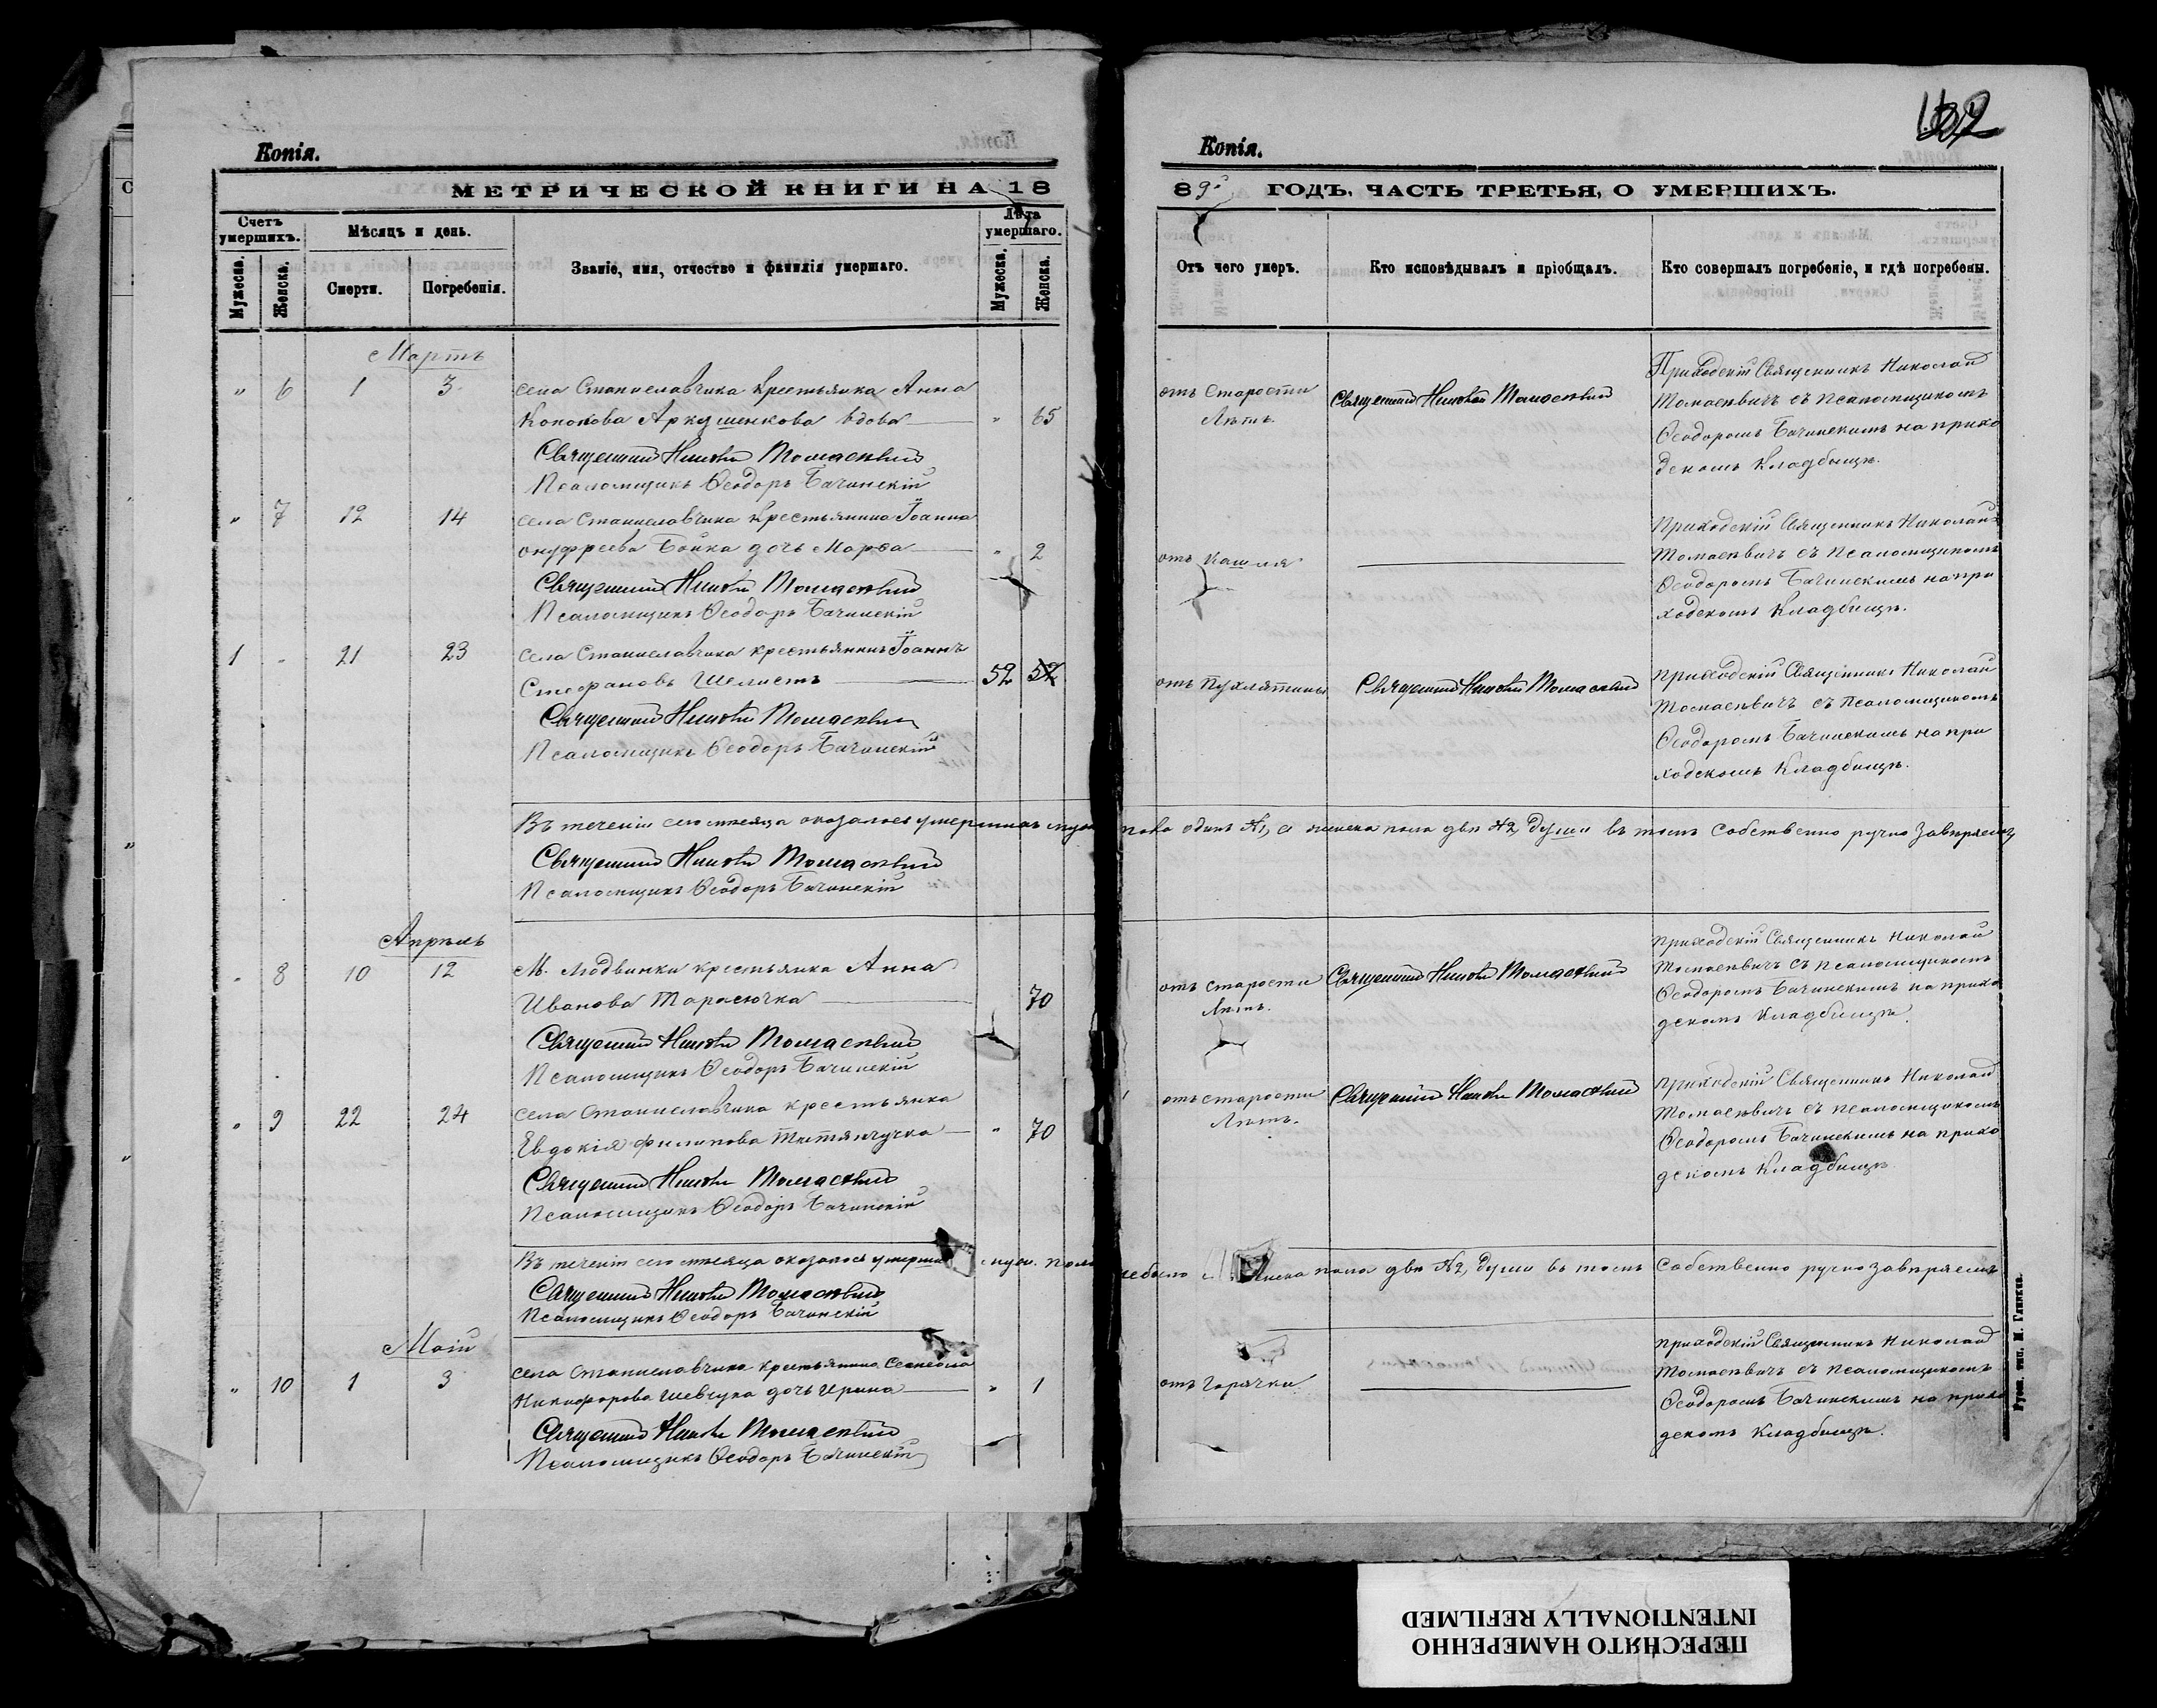 Копія.
МЕТРИЧЕСКОЙ КНИГИ НА 18
Счетъ умершихъ.
Мѣсяцъ и день.
Званіе, имя, отчество и фамилія умершаго.
Лѣта умершаго.
Мужеска.
Женска.
Смерти.
Погребенія.
Мужеска.
Женска.
Мартъ
" 6 1 3 села Станиславчика Крестьянка Анна
Кононова Аркушенкова вдова " 65
Священникъ Николай Томасевичъ
Псаломщикъ Ѳеодоръ Бачинскій
" 7 12 14 села Станиславчика Крестьянина Іоанна
Онуфреева Бойка дочь Марѳа " 2
Священникъ Николай Томасевичъ
Псаломщикъ Ѳеодоръ Бачинскій
1 " 21 23 села Станиславчика крестьянинъ Іоаннъ
Стефановъ Шелистъ 52 52
Священникъ Николай Томасевичъ
Псаломщикъ Ѳеодоръ Бачинскій
Въ теченіи сего мѣсяца оказалось умершихъ муж
Священникъ Николай Томасевичъ
Псаломщикъ Ѳеодоръ Бачинскій
Апрѣль
" 8 10 12 М. Людвинки крестьянка Анна
Иванова Тарасючка 70
Священникъ Николай Томасевичъ
Псаломщикъ Ѳеодоръ Бачинскій
" 9 22 24 села Станиславчика крестьянка
Евдокія Филипова " 70
Священникъ Николай Томасевичъ
Псаломщикъ Ѳеодоръ Бачинскій
Въ теченіи сего мѣсяца оказалось умерших муж. пола
Священникъ Николай Томасевичъ
Псаломщикъ Ѳеодоръ Бачинскій
Маій
" 10 1 3 села Станиславчика крестьянина Симеона
Никифорова Шевчука дочь Ирина " 1
Священникъ Николай Томасевичъ
Псаломщикъ Ѳеодоръ Бачинскій
Копія.
89й ГОДЪ, ЧАСТЬ ТРЕТЬЯ, О УМЕРШИХЪ.
Отъ чего умеръ.
Кто исповѣдывалъ и пріобщалъ.
Кто совершалъ погребеніе, и гдѣ погребены.
отъ Старости
Лѣтъ.
Священникъ Николай Томасевичъ
Приходскій Священникъ Николай
Томасевичъ съ Псаломщикомъ
Ѳеодоромъ Бачинскимъ на прихо
дскомъ Кладбищѣ.
отъ Кашля
Приходскій Священникъ Николай
Томасевичъ съ Псаломщикомъ
Ѳеодоромъ Бачинскимъ на при
ходскомъ Кладбищѣ.
отъ Пухлятины
Священникъ Николай Томасевичъ
Приходскій Священникъ Николай
Томасевичъ съ Псаломщикомъ
Ѳеодоромъ Бачинскимъ на при
ходскомъ Кладбищѣ.
пола одинъ №1, а женска пола двѣ №2, души въ томъ Собственно ручно Завѣряемъ
отъ старости
Лѣтъ.
Священникъ Николай Томасевичъ
Приходскій Священникъ Николай
Томасевичъ съ Псаломщикомъ
Ѳеодоромъ Бачинскимъ на прихо
дскомъ Кладбищѣ.
отъ старости
Лѣтъ.
Священникъ Николай Томасевичъ
Приходскій Священникъ Николай
Томасевичъ съ Псаломщикомъ
Ѳеодоромъ Бачинскимъ на прихо
дскомъ Кладбищѣ
небыло женска пола двѣ №2, души въ томъ Собственно ручно Завѣряемъ
отъ Горячки
Приходскій Священникъ Николай
Томасевичъ съ Псаломщикомъ
Ѳеодоромъ Бачинскимъ на прихо
дскомъ Кладбищѣ.
Русск. тип. М. Глинка.
ПЕРЕСНЯТО НАМЕРЕННО
INTENTIONALLY REFILMED